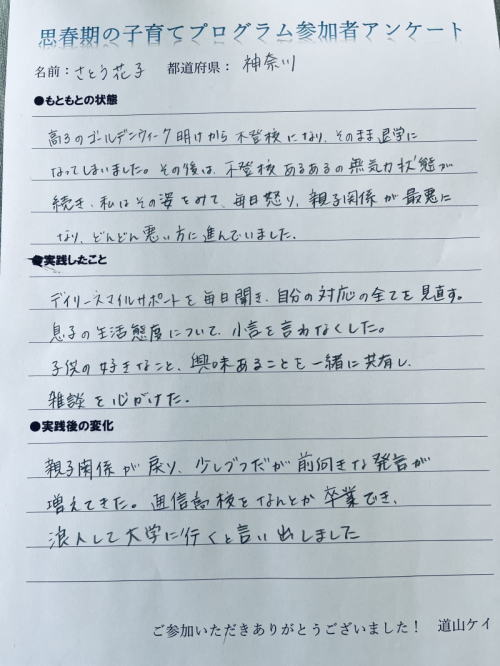 思春期の子育てプログラム参加者アンケート
名前：さとう花子　都道府県：神奈川
●もともとの状態
高3のゴールデンウィーク明けから不登校になり、そのまま退学に
なってしまいました。その後は、不登校あるあるの無気力状態が
続き、私はその姿をみて、毎日怒り、親子関係が最悪に
なり、どんどん悪い方に進んでいました。
●実践したこと
デイリースマイルサポートを毎日開き、自分の対応の全てを見直す。
息子の生活態度について、小言を言わなくした。
子供の好きなこと、興味あることを一緒に共有し、
雑談を心がけた。
●実践後の変化
親子関係が戻り、少しづつだが前向きな発言が
増えてきた。通信高校をなんとか卒業でき、
浪人して大学に行くと言い出しました
ご参加いただきありがとうございました！　道山ケイ